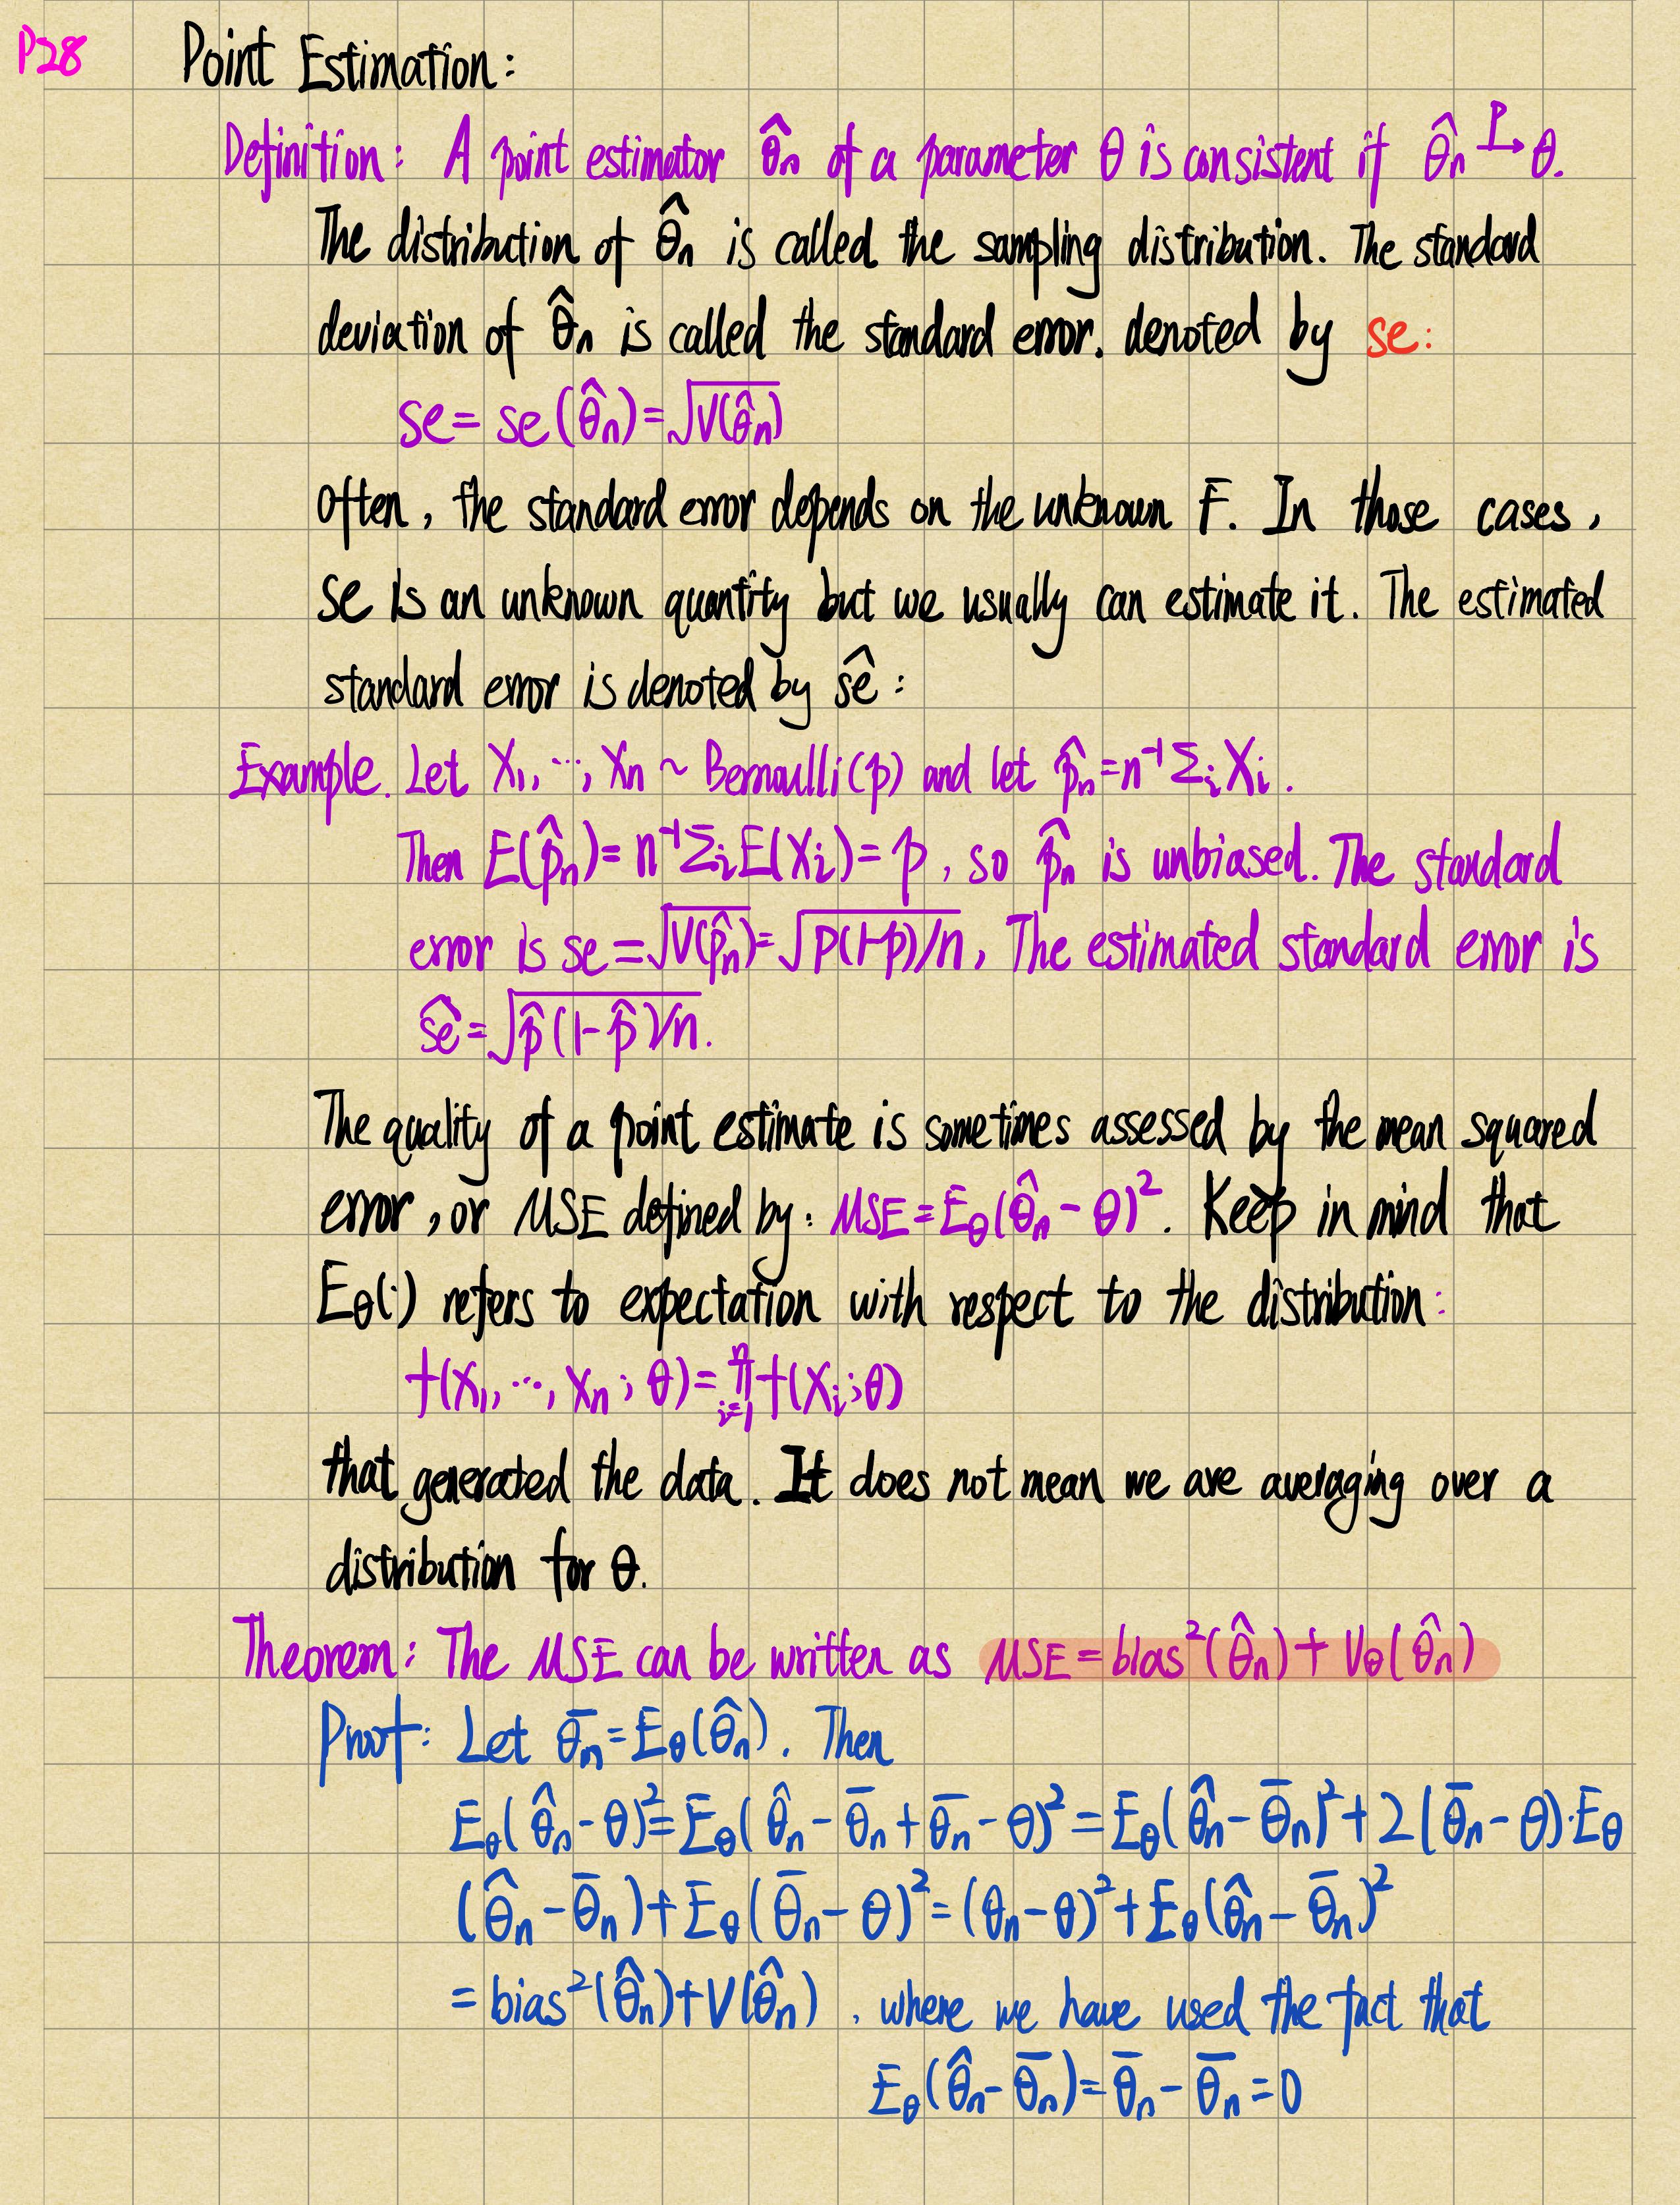 P28
Point Estimation:
Definition: A point estimator θ̂n of a parameter θ is consistent if θ̂n →ᴾ θ.
The distribution of θ̂n is called the sampling distribution. The standard
deviation of θ̂n is called the standard error. denoted by se:
se = se(θ̂n) = √V(θ̂n)
Often, the standard error depends on the unknown F. In those cases,
se is an unknown quantity but we usually can estimate it. The estimated
standard error is denoted by ŝe:
Example. Let X₁, ..., Xn ~ Bernoulli(p) and let p̂n = n⁻¹ Σᵢ Xᵢ.
Then E(p̂n) = n⁻¹ Σᵢ E(Xᵢ) = p, so p̂n is unbiased. The standard
error is se = √V(p̂n) = √p(1-p)/n, The estimated standard error is
ŝe = √p̂(1-p̂)/n.
The quality of a point estimate is sometimes assessed by the mean squared
error, or MSE defined by: MSE = Eθ(θ̂n - θ)². Keep in mind that
Eθ(·) refers to expectation with respect to the distribution:
f(x₁, ..., xn; θ) = ∏ⁿᵢ₌₁ f(xᵢ; θ)
that generated the data. It does not mean we are averaging over a
distribution for θ.
Theorem: The MSE can be written as MSE = bias²(θ̂n) + Vθ(θ̂n)
Proof: Let θ̄n = Eθ(θ̂n). Then
Eθ(θ̂n - θ)² = Eθ(θ̂n - θ̄n + θ̄n - θ)² = Eθ(θ̂n - θ̄n)² + 2(θ̄n - θ)·Eθ
(θ̂n - θ̄n) + Eθ(θ̄n - θ)² = (θn - θ)² + Eθ(θ̂n - θ̄n)²
= bias²(θ̂n) + V(θ̂n), where we have used the fact that
Eθ(θ̂n - θ̄n) = θ̄n - θ̄n = 0